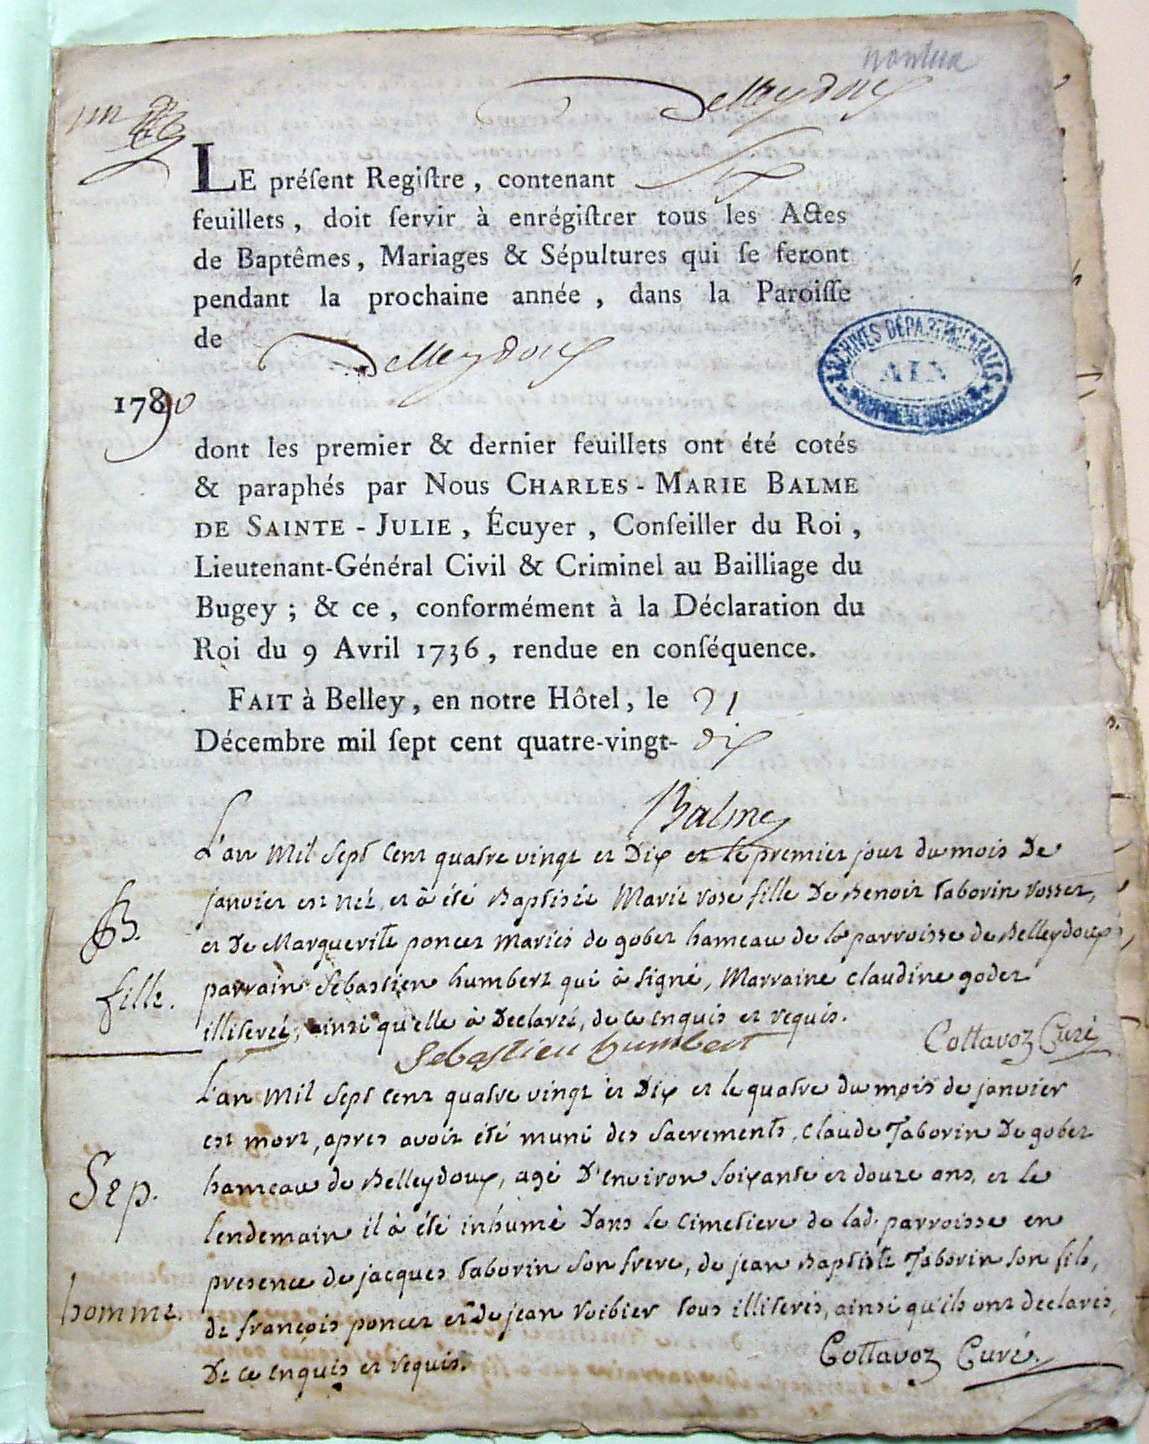 nantua
Belleydoux
un
LE préſent Regiſtre, contenant Six
feuillets, doit ſervir à enrégiſtrer tous les Actes
de Baptêmes, Mariages & Sépultures qui ſe feront
pendant la prochaine année, dans la Paroiſſe
de Belleydoux
ARCHIVES DÉPARTEMENTALES
AIN
1790
dont les premier & dernier feuillets ont été cotés
& paraphés par Nous CHARLES-MARIE BALME
DE SAINTE-JULIE, Écuyer, Conſeiller du Roi,
Lieutenant-Général Civil & Criminel au Bailliage du
Bugey; & ce, conformément à la Déclaration du
Roi du 9 Avril 1736, rendue en conſéquence.
FAIT à Belley, en notre Hôtel, le 31
Décembre mil ſept cent quatre-vingt-dix
Balme
L'an Mil Sept Cent quatre vingt et Dix et le premier jour du mois De
janvier est née et à été Baptisée Marie rose fille De Benoit taborin rosset,
et De Marguerite poncet mariés de gobet hameau de la parroisse de Belleydoux,
B.
fille.
parrain Sébastien humbert qui à signé, Marraine claudine godet
illiterée, ainsi qu'elle à Declaré, de ce enquis et requis.
Sebastien humbert
Cottavoz Curé
L'an Mil Sept cent quatre vingt et Dix et le quatre du mois de janvier
est mort, apres avoir été muni des sacrements, claude Taborin De gobet
Sep.
homme.
hameau de Belleydoux, agé D'environ soixante et douze ans, et le
lendemain il à été inhumé Dans le cimetiere de lad. parroisse en
presence de jacques taborin son frere, de jean Baptiste Taborin son fils,
de françois poncet et de jean roibier tous illiterés, ainsi qu'ils ont declarés,
De ce enquis et requis.
Cottavoz Curé.